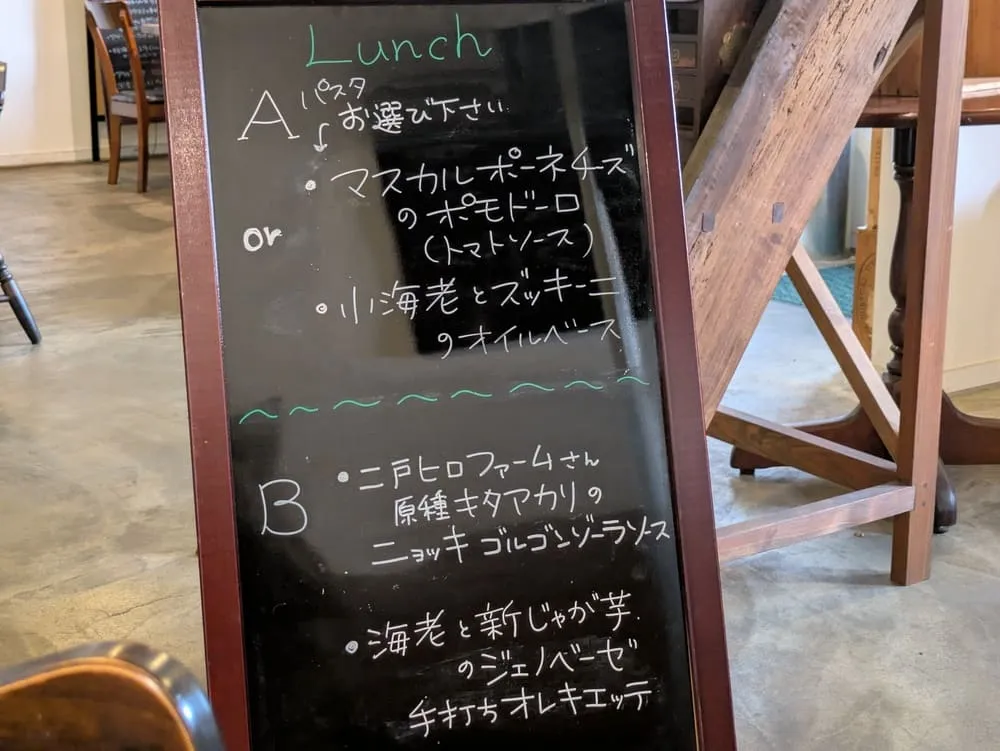 Lunch
A パスタ
お選び下さい
・マスカルポーネチーズ
のポモドーロ
(トマトソース)
or
・小海老とズッキーニ
のオイルベース
B
・二戸ヒロファームさん
原種キタアカリの
ニョッキ ゴルゴンゾーラソース
・海老と新じゃが芋
のジェノベーゼ
手打ちオレキエッテ